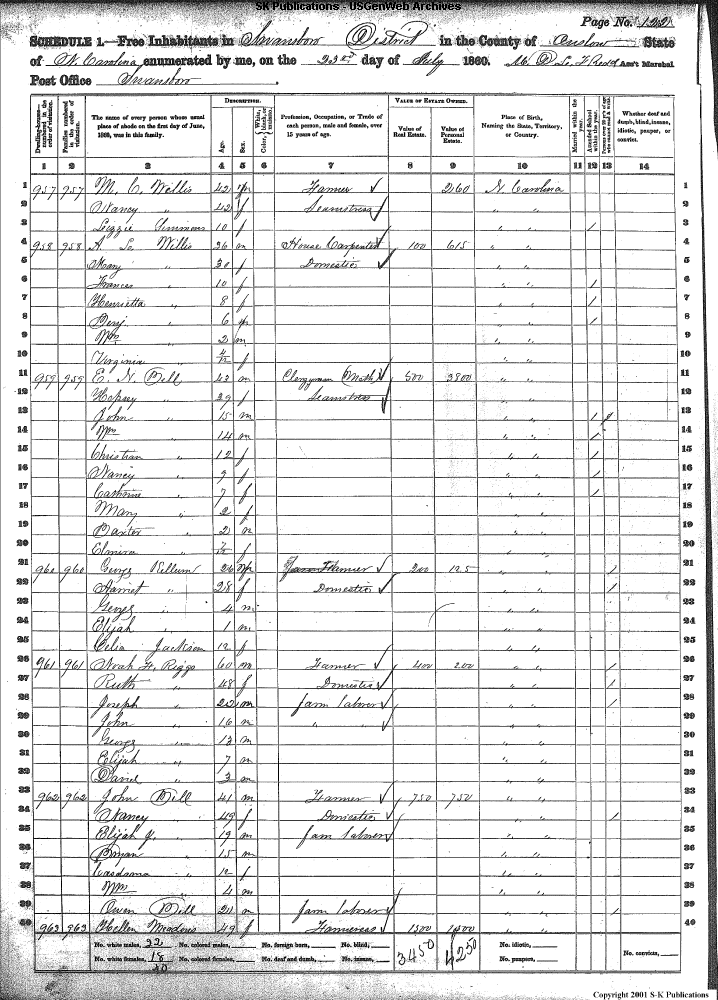 SK Publications - USGenWeb Archives
Page No. 122
SCHEDULE 1.—Free Inhabitants in Swansboro District in the County of Onslow State
of N. Carolina enumerated by me, on the 23rd day of July 1860. Ass't Marshal
Post Office Swansboro
Dwelling-houses—numbered in the order of visitation. Families numbered in the order of visitation. The name of every person whose usual place of abode on the first day of June, 1860, was in this family. DESCRIPTION. Age. Sex. Color, White, black, or mulatto. Profession, Occupation, or Trade of each person, male and female, over 15 years of age. VALUE OF ESTATE OWNED. Value of Real Estate. Value of Personal Estate. Place of Birth, Naming the State, Territory, or Country. Married within the year. Attended School within the year. Persons over 20 y'rs of age who cannot read & write. Whether deaf and dumb, blind, insane, idiotic, pauper, or convict.
1 2 3 4 5 6 7 8 9 10 11 12 13 14
1 957 957 M. C. Willis 42 m Farmer 260 N. Carolina 1
2 Nancy " 42 f Seamstress " " 2
3 Lizzie Simmons 10 f " " / 3
4 958 958 A. S. Willis 36 m House Carpenter 100 615 " " 4
5 Mary " 30 f Domestic " " 5
6 Frances " 10 f " " / 6
7 Henrietta " 8 f " " / 7
8 Benj. " 6 m " " / 8
9 Wm " 2 m " " 9
10 Virginia " f " " 10
11 959 959 E. N. Bell 43 m Clergyman (Meth) 500 3800 " " 11
12 Hepsy " 39 f Seamstress " " 12
13 John " 15 m " " / 13
14 Wm " 14 m " " / 14
15 Christian " 12 f " " / 15
16 Nancy " 9 f " " / 16
17 Catherine " 7 f " " / 17
18 Mary " 2 f " " 18
19 Baxter " 2 m " " 19
20 Elmira " f " " 20
21 960 960 George Kellum 26 m Farmer 200 125 " " / 21
22 Harriet " 28 f Domestic " " / 22
23 George " 4 m " " 23
24 Elijah " 1 m " " 24
25 Celia Jackson 12 f " " 25
26 961 961 Noah H. Riggs 60 m Farmer 400 200 " " / 26
27 Ruth " 48 f Domestic " " / 27
28 Joseph " 20 m farm laborer " " / 28
29 John " 16 m " " " 29
30 George " 13 m " " 30
31 Elijah " 7 m " " 31
32 David " 3 m " " 32
33 962 962 John Bell 41 m Farmer 750 750 " " 33
34 Nancy " 49 f Domestic " " / 34
35 Elijah J. " 19 m farm laborer " " 35
36 " 15 m " " 36
37 " 12 f " " 37
38 Wm " 4 m " " 38
39 Owen Bell 21 m farm laborer " " / 39
40 963 963 Hellen Meadows 49 f Farmeress 1500 " " 40
No. white males, 22 No. colored males, No. foreign born, No. blind, 3450 4250 No. idiotic, No. convicts,
No. white females, 18 No. colored females, No. deaf and dumb, No. insane, No. paupers,
40
Copyright 2001 S-K Publications